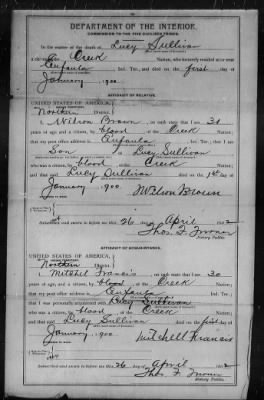 DEPARTMENT OF THE INTERIOR.
COMMISSION TO THE FIVE CIVILIZED TRIBES.
In the matter of the death of Lucy Sullivan
a Creek Nation, who formerly resided at or near
Eufaula Ind. Ter., and died on the first day of
January, 1900
AFFIDAVIT OF RELATIVE.
UNITED STATES OF AMERICA,
Northern District.
I, Wilson Brown, on oath state that I am 31
years of age, and a citizen, by blood, of the Creek Nation;
that my post office address is Eufaula, Ind. Ter.; that I am
Son of Lucy Sullivan
who was a citizen, by blood, of the Creek Nation;
and that said Lucy Sullivan died on the 1st day of
January, 1900
Wilson Brown
Subscribed and sworn to before me this 26 day of April 1902
Notary Public.
AFFIDAVIT OF ACQUAINTANCE.
UNITED STATES OF AMERICA,
Northern District.
I, Mitchel Francis, on oath state that I am 30
years of age, and a citizen by blood of the Creek Nation;
that my post office address is Eufaula, Ind. Ter.;
that I was personally acquainted with Lucy Sullivan
who was a citizen, by blood, of the Creek Nation;
and that said Lucy Sullivan died on the first day of
January, 1900
Mitchell Francis
Subscribed and sworn to before me this 26 day of April 1902
Notary Public.